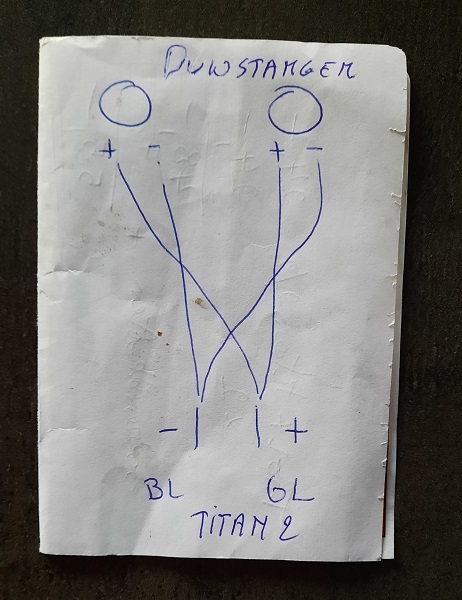 DUWSTANGEN
+ - + -
- +
BL GL
TITAN 2